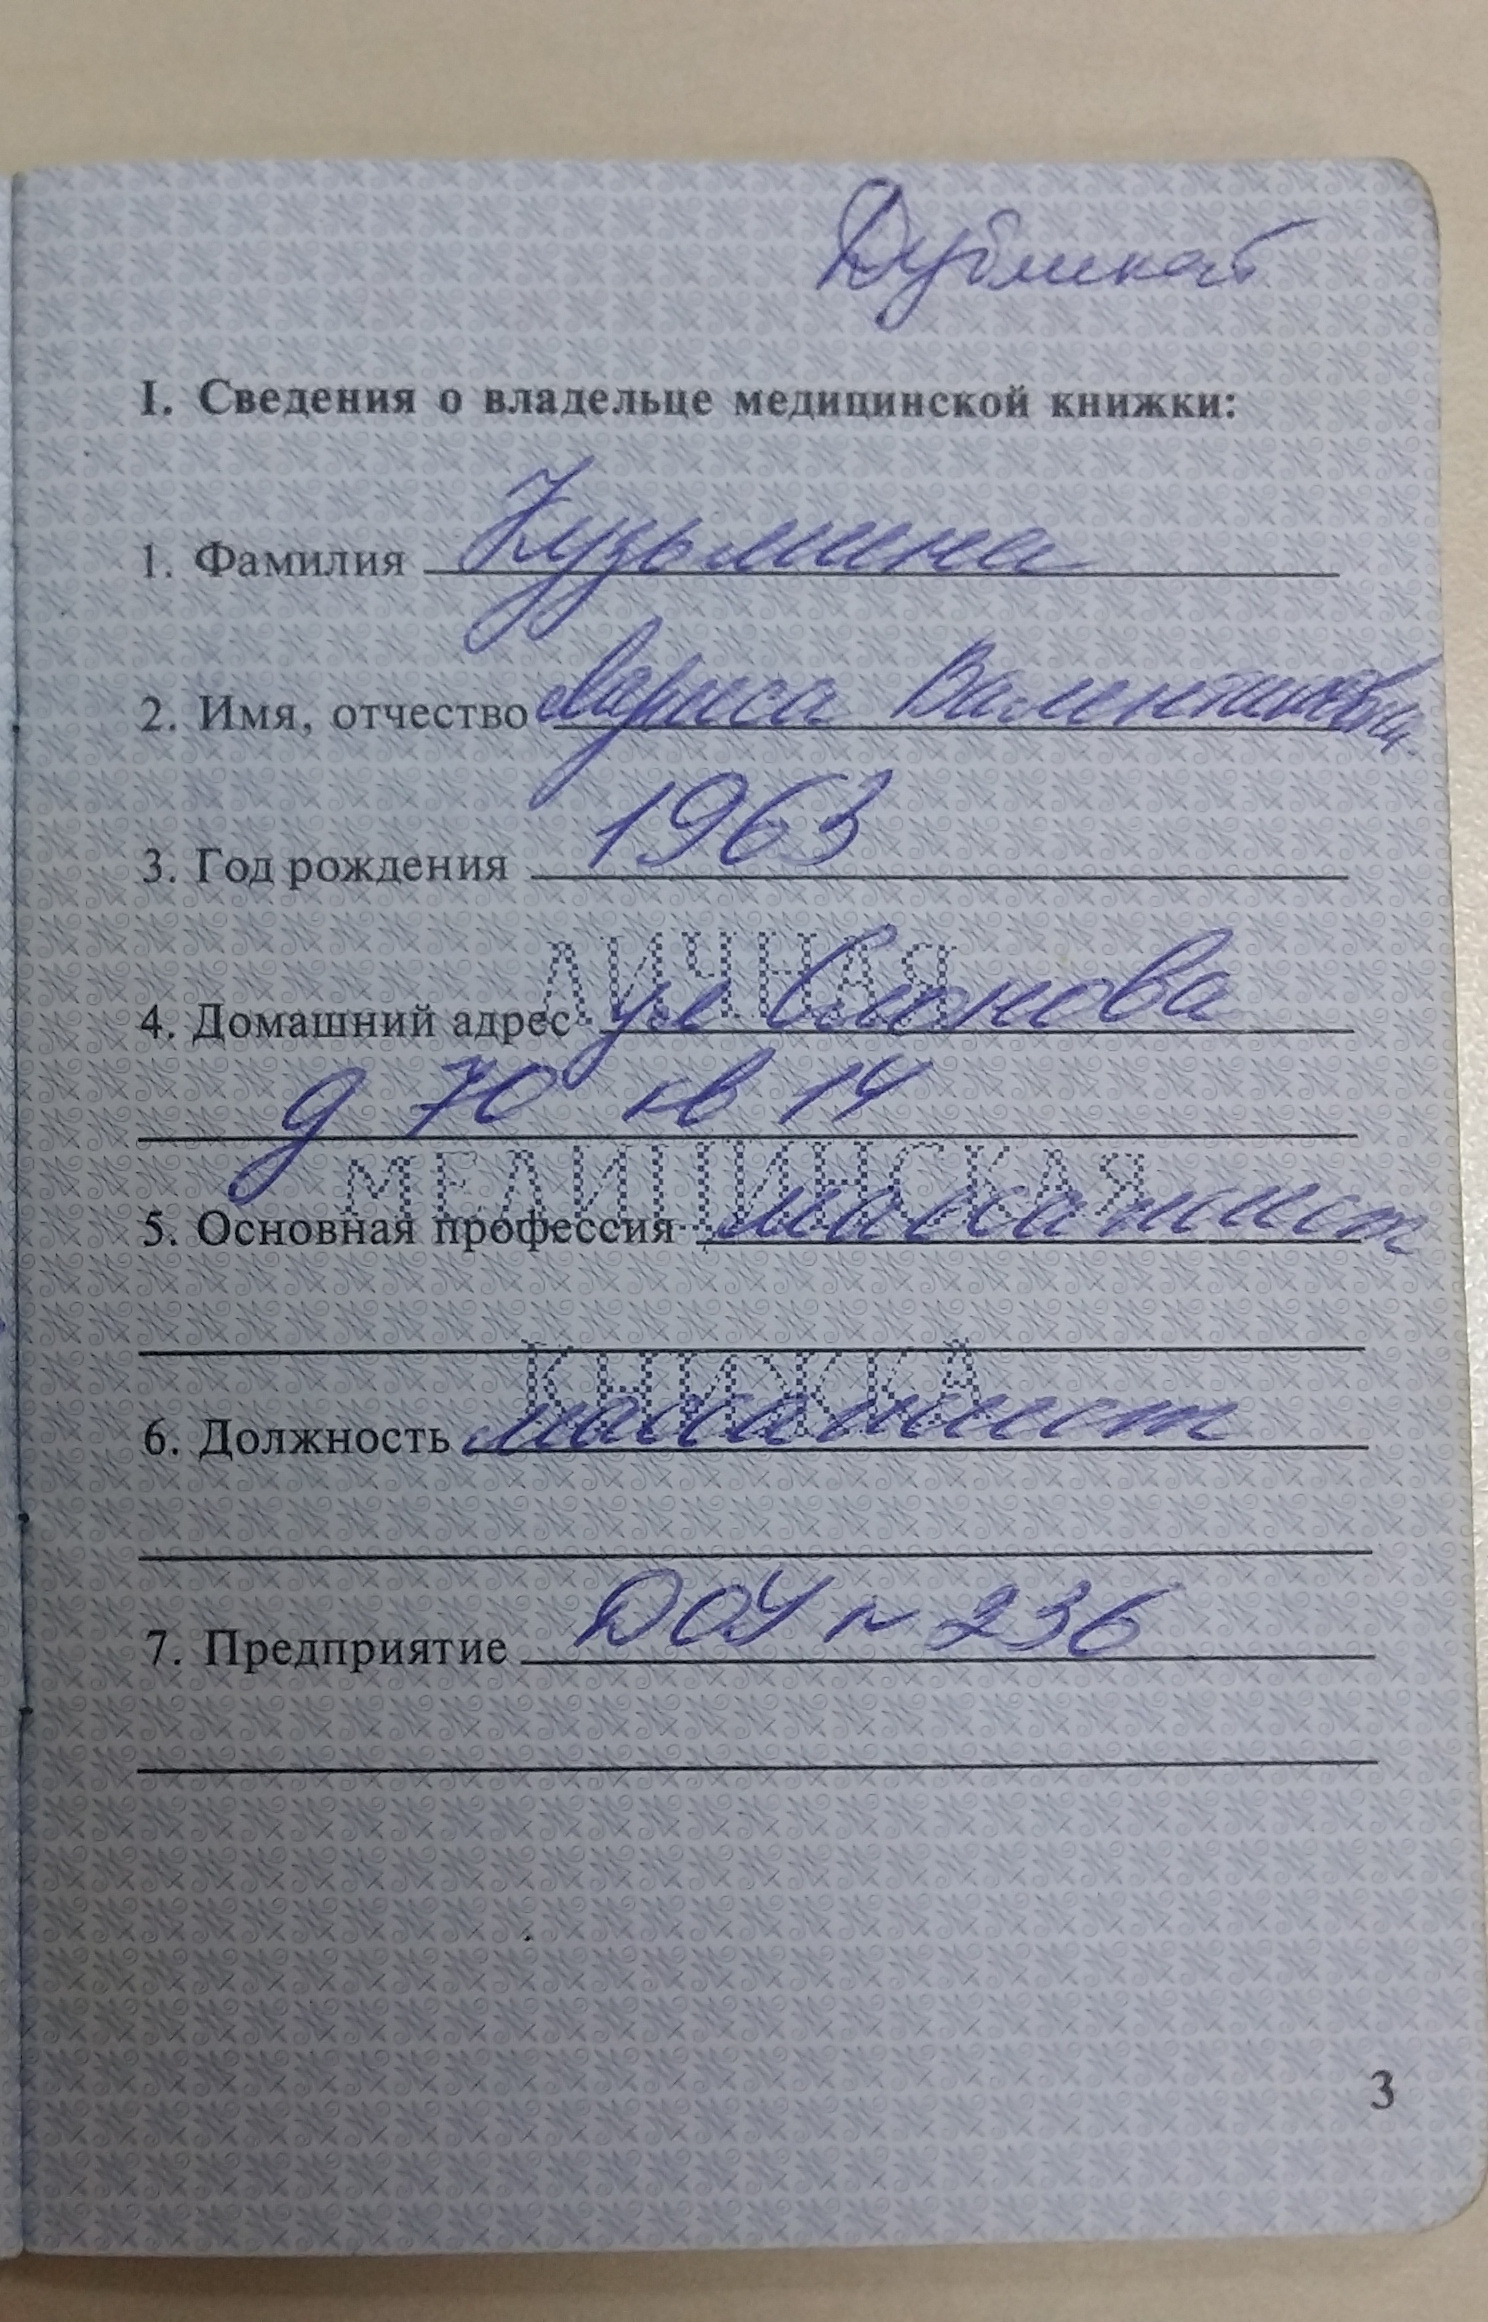 Дубликат
I. Сведения о владельце медицинской книжки:
1. Фамилия Кузьмина
2. Имя, отчество Лариса Валентиновна
3. Год рождения 1963
ЛИЧНАЯ
4. Домашний адрес ул Слонова
д 70 кв 14
МЕДИЦИНСКАЯ
5. Основная профессия массажист
КНИЖКА
6. Должность массажист
7. Предприятие ДОУ N 236
3